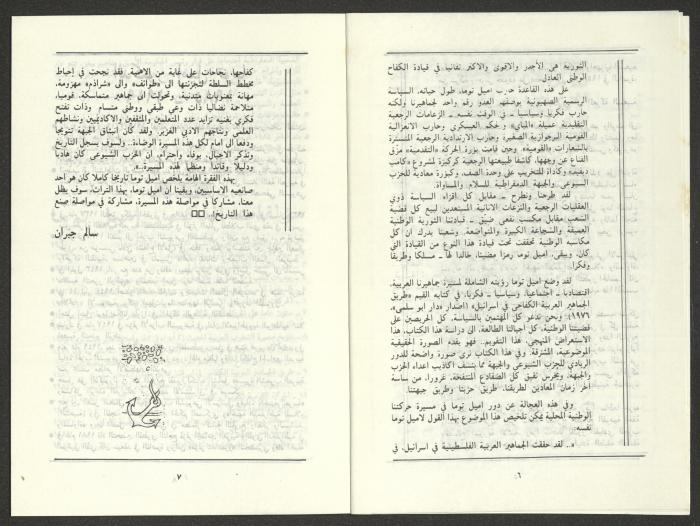 الثورية هي الأجدر والاقوى والاكثر تفانيا في قيادة الكفاح
الوطني العادل.
على هذه القاعدة حارب اميل توما، طول حياته، السياسة
الرسمية الصهيونية بوصفهم العدو رقم واحد لجماهيرنا ولكنه
حارب فكريا وسياسيا ـ في الوقت نفسه ـ الزعامات الرجعية
التقليدية عميلة «المباي» والحكم العسكري وحارب الانعزالية
القومية البرجوازية الصغيرة، وحارب الارتدادية الرجعية المتسترة
بالشعارات «القومية». وحين قامت بؤرة الحركة «التقدمية» مزق
القناع عن وجهها، كاشفا طبيعتها الرجعية كركيزة لمشروع «كامب
ديفيد» وكأداة للتخريب على وحدة الصف، وكبؤرة معادية للحزب
الشيوعي والجبهة الديمقراطية للسلام والمساواة.
لقد طرحنا ونطرح ـ مقابل كل اقزاء السياسة ذوي
العقليات الرجعية والنزعات الانانية المستعدين لبيع كل قضية
الشعب مقابل مكسب نفعي ضيق ـ قيادتنا الثورية الوطنية
العميقة والشجاعة الكبيرة والمتواضعة. وشعبنا يدرك ان كل
مكاسبه الوطنية تحققت تحت قيادة هذا النوع من القيادة التي
كان، ويبقى، اميل توما رمزا مضيئا، خالدا لها ـ مسلكا وطريقا
وفكرا.
لقد وضع اميل توما رؤيته الشاملة لمسيرة جماهيرنا العربية،
اقتصاديا ـ اجتماعيا، وسياسيا ـ فكريا، في كتابه القيم «طريق
الجماهير العربية الكفاحي في اسرائيل» (اصدار «دار ابو سلمى»،
١٩٧٦). ونحن ندعو كل المهتمين بالسياسة، كل الحريصين على
قضيتنا الوطنية، كل اجيالنا الطالعة، الى دراسة هذا الكتاب، هذا
الاستعراض المنهجي، هذا التقويم. فهو يقدم الصورة الحقيقية
الموضوعية، المشرقة. وفي هذا الكتاب نرى صورة واضحة للدور
الريادي للحزب الشيوعي والجبهة مما ينسف اكاذيب اعداء الحزب
والجبهة، ويخرس نقيق كل الضفادع المنتفخة، غرورا، من ساسة
آخر زمان المعادين لطريقنا، طريق حزبنا وطريق جبهتنا.
وفي هذه العجالة عن دور اميل توما في مسيرة حركتنا
الوطنية المحلية يمكن تلخيص هذا الموضوع بهذا القول لاميل توما
نفسه:
«.. لقد حققت الجماهير العربية الفلسطينية في اسرائيل، في
٦
كفاحها، نجاحات على غاية من الاهمية. فقد نجحت في إحباط
مخطط السلطة لتجزئتها الى «طوائف» والى «شراذم» مهزومة،
مهانة بمعنويات متدنية، وتحولت الى جماهير متماسكة، قوميا،
متلاحمة نضاليا ذات وعي طبقي ووطني متسام وذات تفتح
فكري يغنيه تزايد عدد المتعلمين والمثقفين والاكاديميين ونشاطهم
العلمي ونتاجهم الادبي الغزير. ولقد كان انبثاق الجبهة تتويجا
ودفعا الى امام لكل هذه المسيرة الوضاءة. ولسوف يسجل التاريخ
وتذكر الاجيال، بوفاء واحترام، ان الحزب الشيوعي كان هاديا
ودليلا وقائدا ومنظما لهذه المسيرة..».
بهذه الفقرة الهامة يلخص اميل توما تاريخا كاملا كان هو احد
صانعيه الاساسيين. وبقينا ان اميل توما، بهذا التراث، سوف يظل
معنا، مشاركا في مواصلة هذه المسيرة، مشاركة في مواصلة صنع
هذا التاريخ!..
سالم جبران
٧